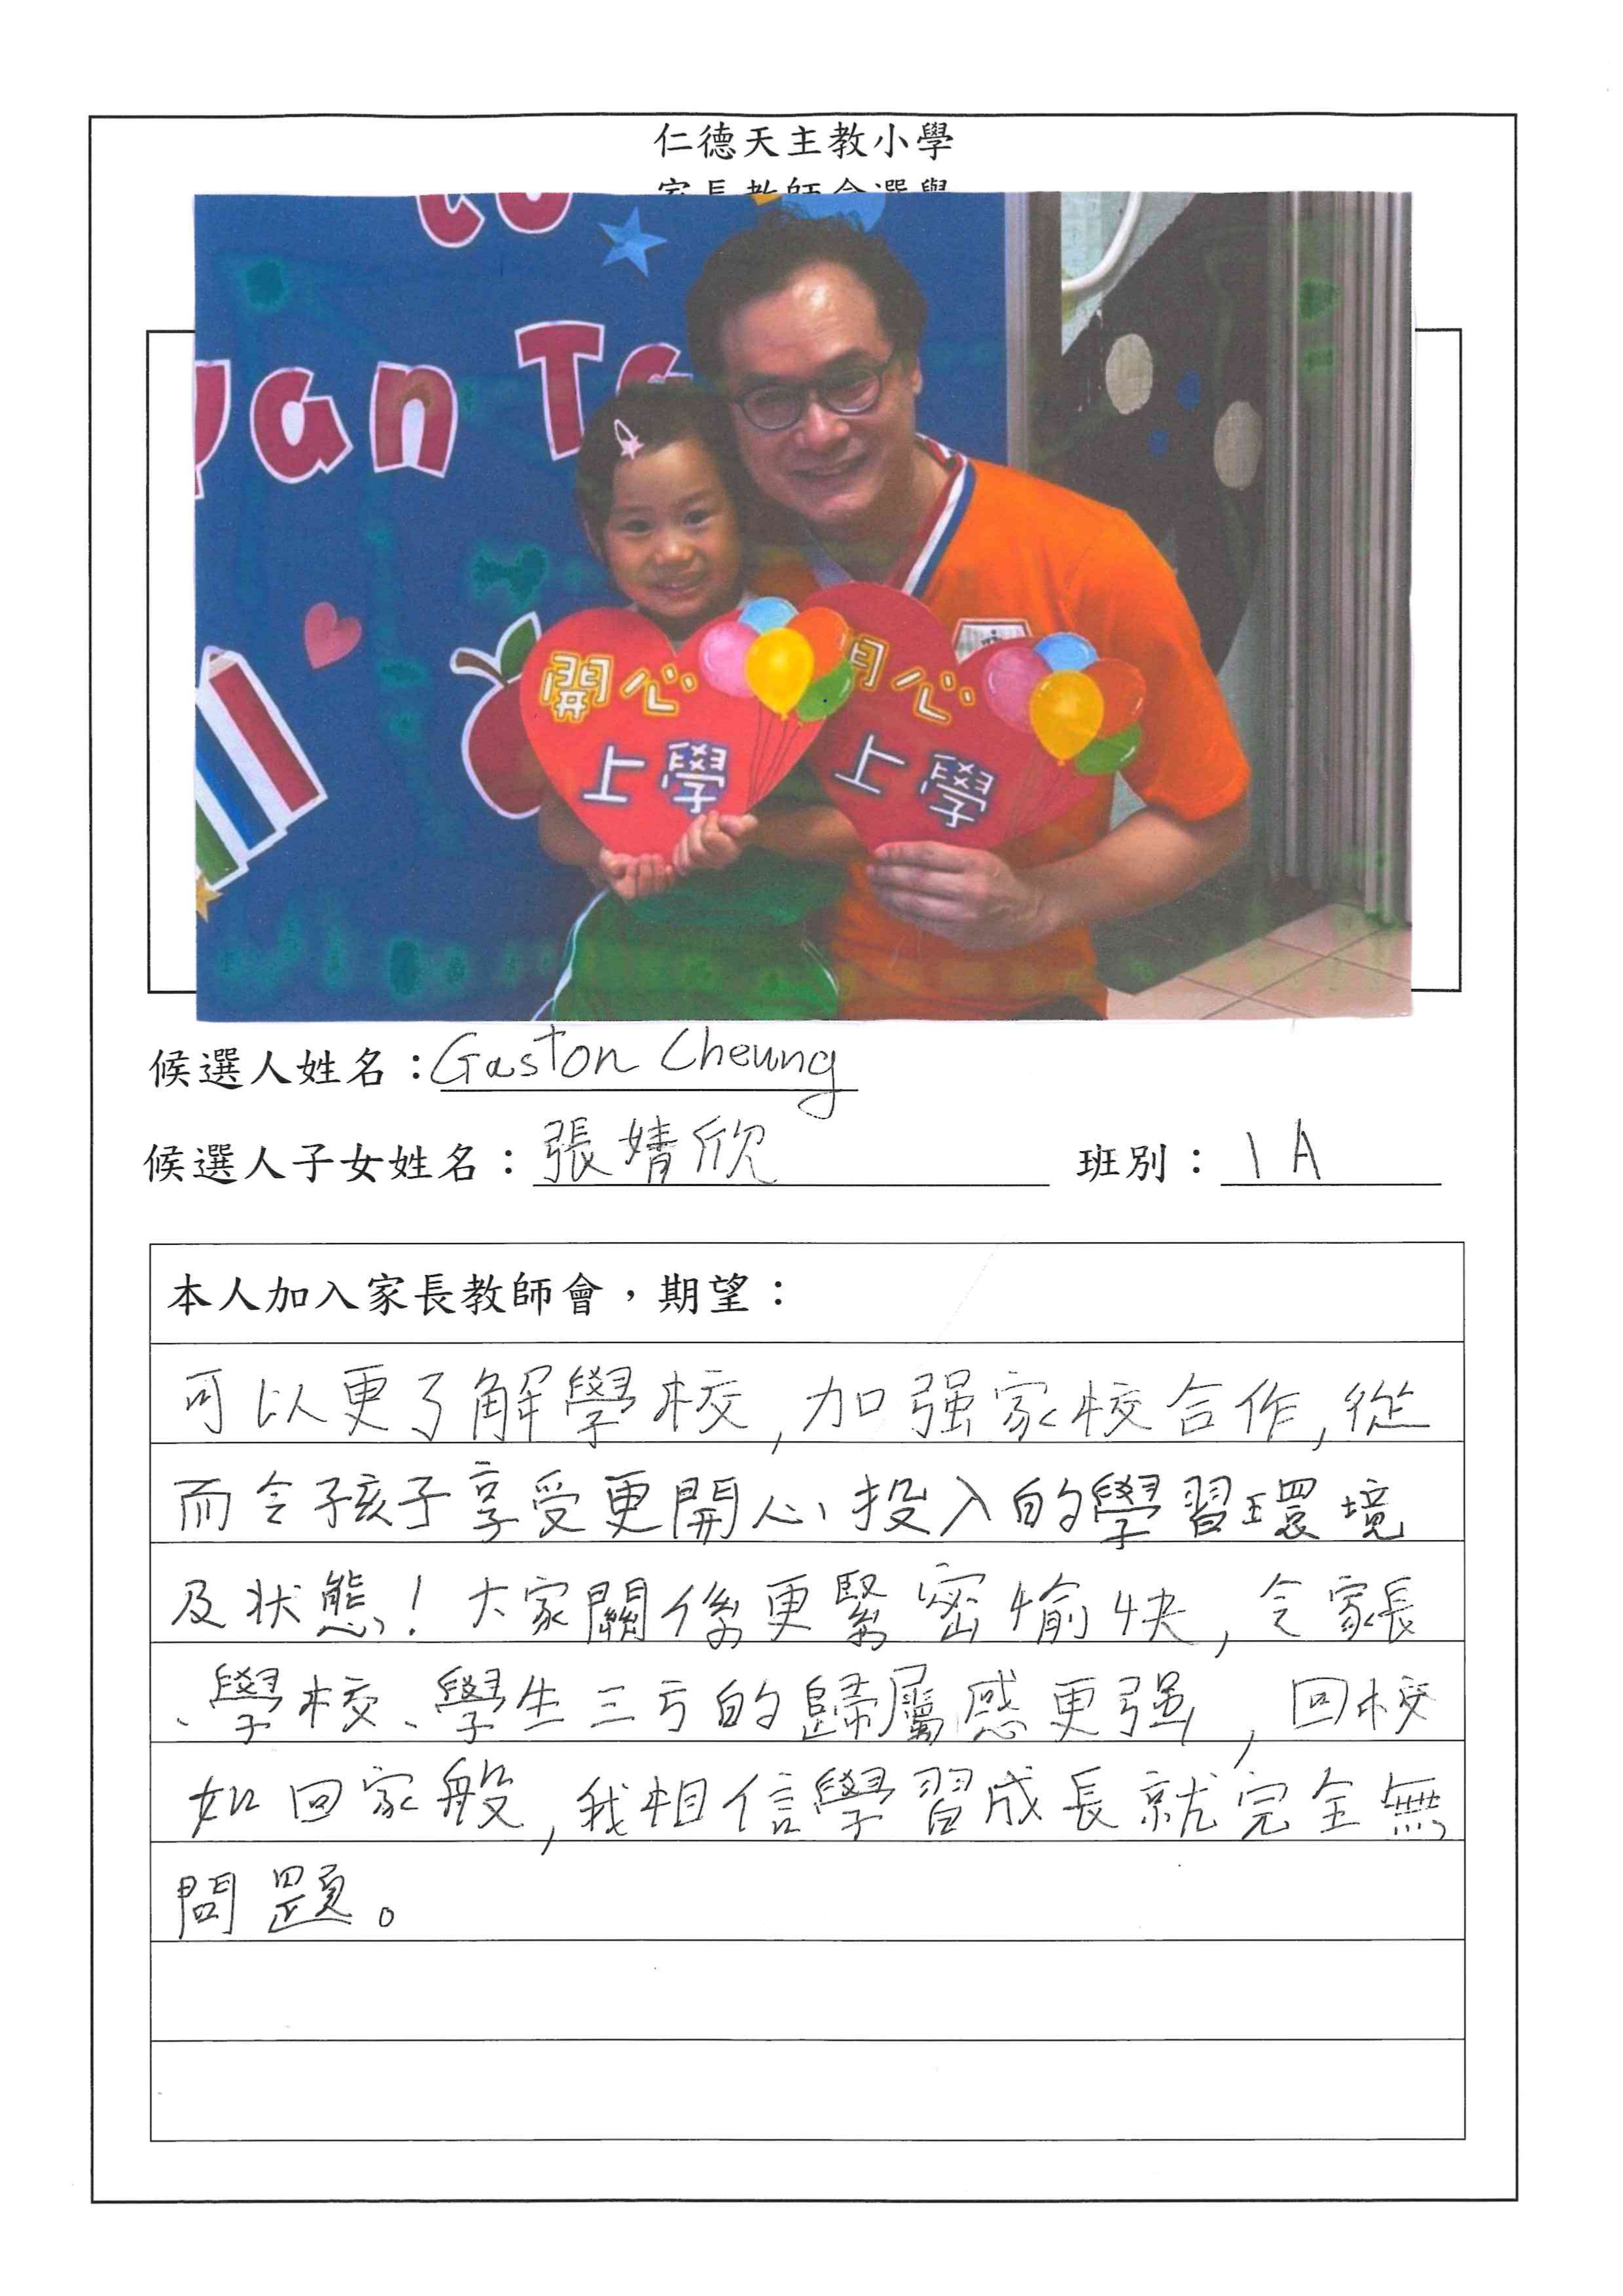 仁德天主教小學
家長教師會選舉
to
yan T
開心
上學
開心
上學
候選人姓名：Gaston Cheung
候選人子女姓名：張婧欣 班別：1A
本人加入家長教師會，期望：
可以更了解學校,加强家校合作,從
而令孩子享受更開心、投入的學習環境
及状態！大家關係更緊密愉快,令家長
、學校、學生三方的歸屬感更强,回校
如回家般,我相信學習成長就完全無
問題。